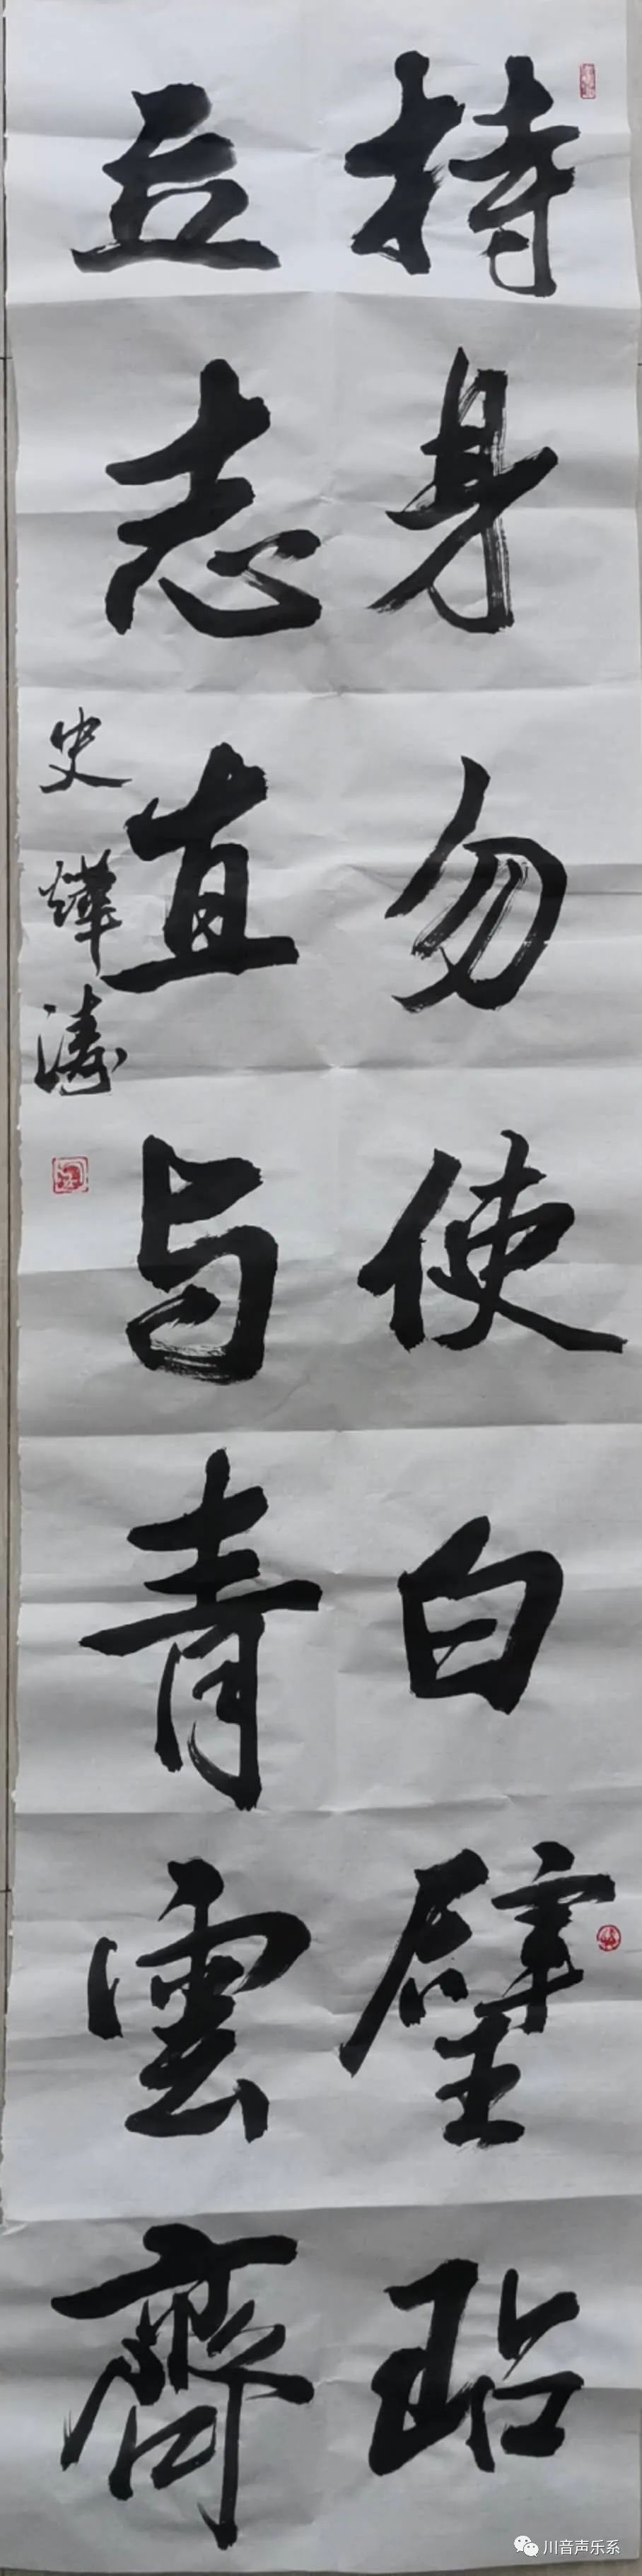 持身勿使白璧玷
立志直与青雲齊
史燁濤
川音声乐系